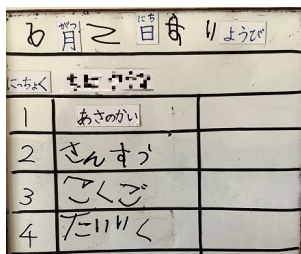 がつ にち
6月2日 ようび
にっちょく
1 あさのかい
2 さんすう
3 こくご
4 たいいく